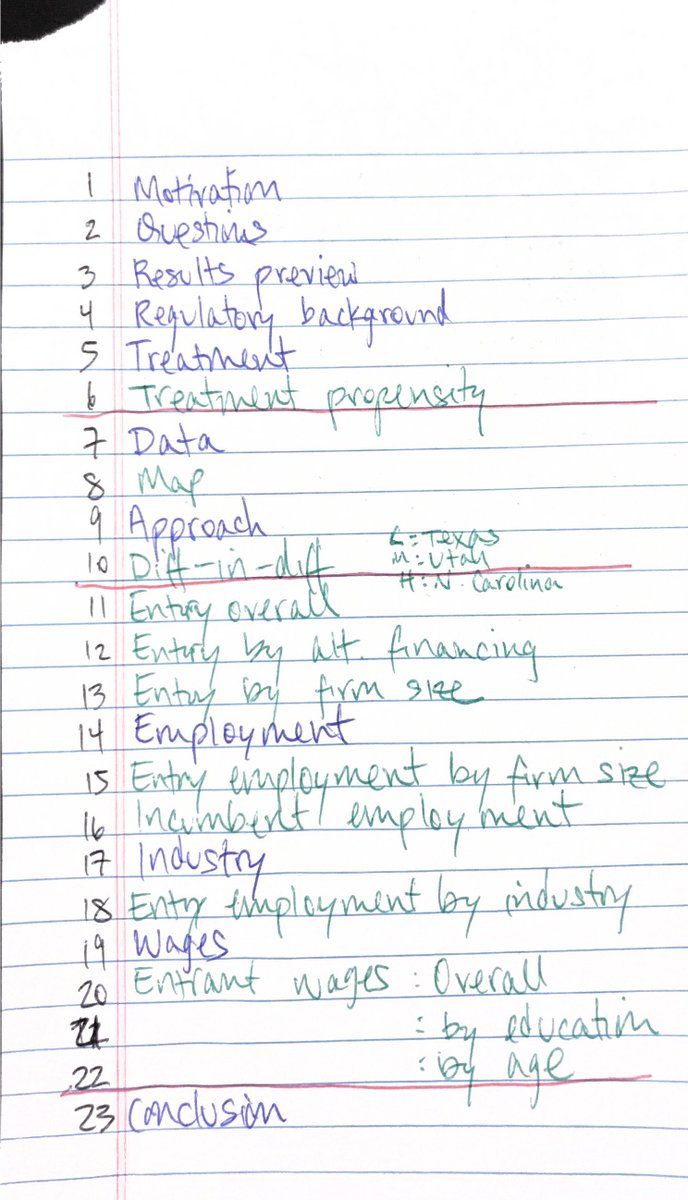 1 Motivation
2 Questions
3 Results preview
4 Regulatory background
5 Treatment
6 Treatment propensity
7 Data
8 Map
9 Approach
L: Texas
M: Utah
10 Diff-in-diff
H: N. Carolina
11 Entry overall
12 Entry by alt. financing
13 Entry by firm size
14 Employment
15 Entry employment by firm size
16 Incumbent employment
17 Industry
18 Entry employment by industry
19 Wages
20 Entrant wages : Overall
21 : by education
22 : by age
23 Conclusion